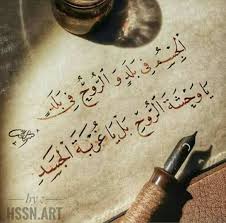 الجِسمُ في بَلَدٍ وَ الرُّوحُ في بَلَدٍ
يا وَحْشَةَ الرُّوحِ بَل يا غُربَةَ الجَسَدِ
by:
HSSN.ART